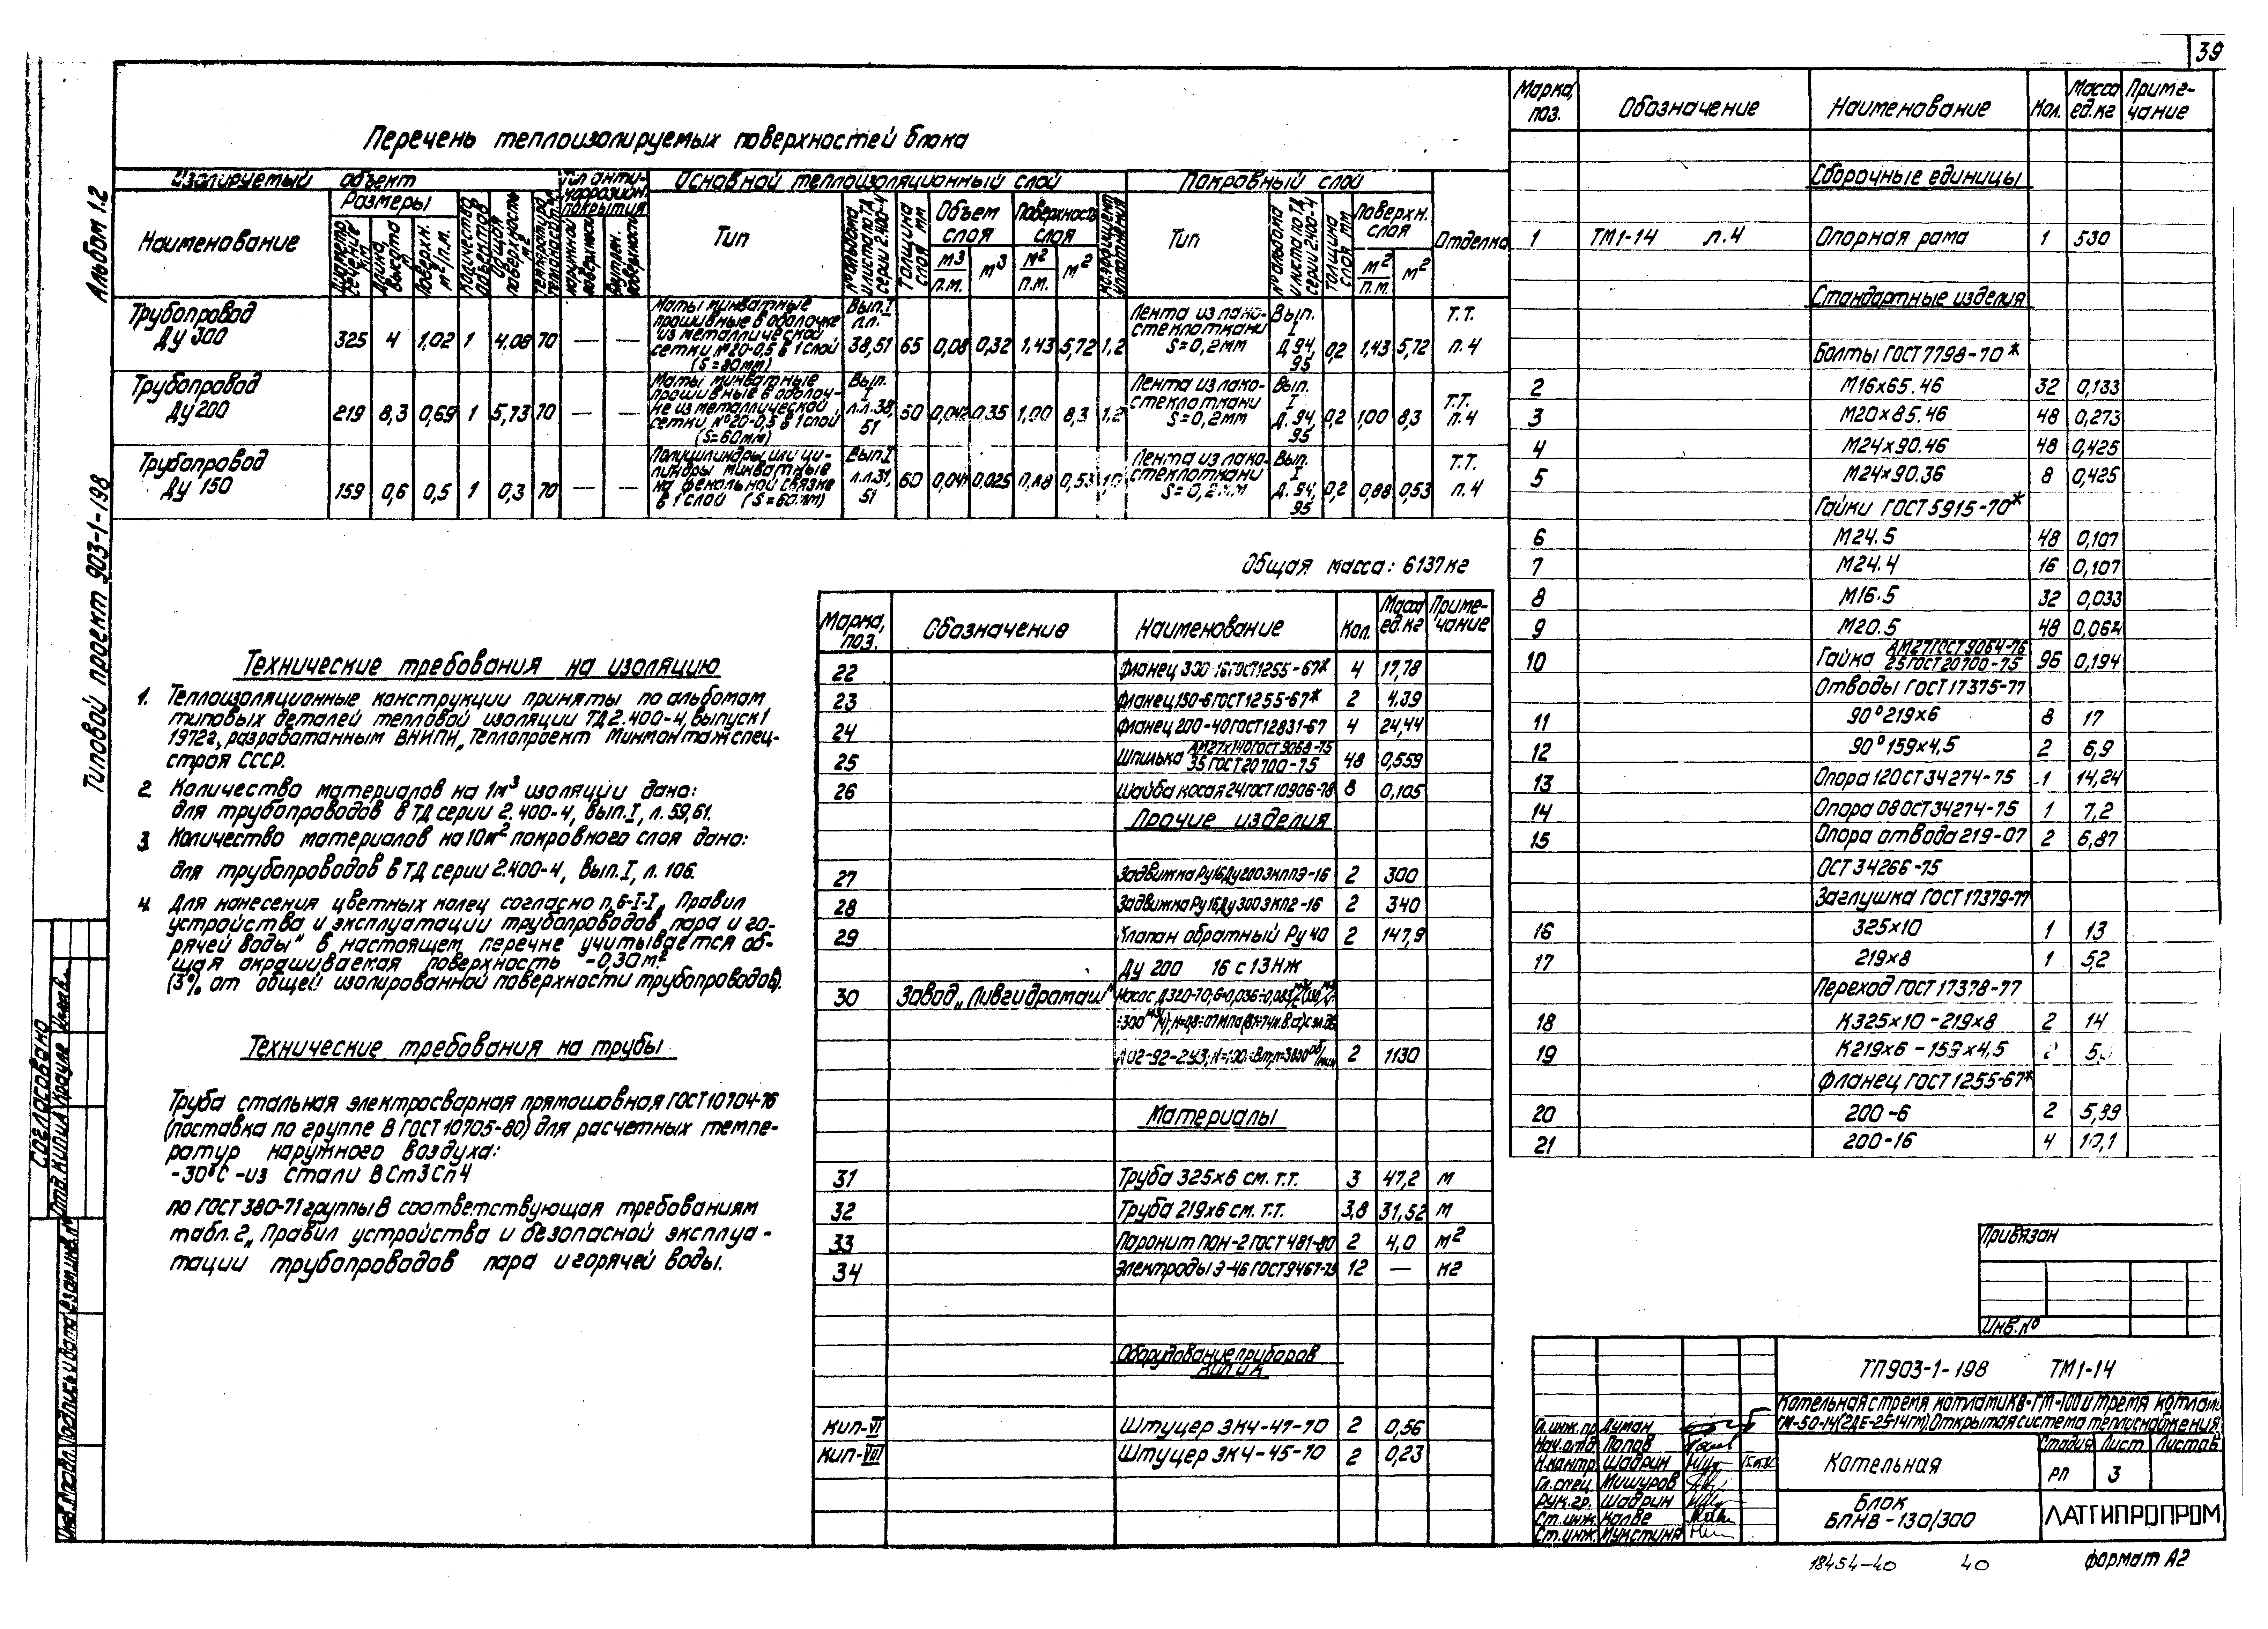 39
Альбом 1.2
Типовой проект 903-1-198
Перечень теплоизолируемых поверхностей блока
Изолируемый объект
Основной теплоизоляционный слой
Покровный слой
Размеры
Наименование
Тип
Объем слоя
Поверхность слоя
Тип
Поверхн. слоя
Отделка
м³/п.м. м³ м²/п.м. м²
м²/п.м. м²
Трубопровод Ду 300
325 4 1,02 1 4,08 70 — —
Маты минватные прошивные в оболочке из металлической сетки №20-0,5 в 1 слой (S=80мм)
Вып.I л.л. 38,51 65 0,08 0,32 1,43 5,72 1,2
Лента из лакостеклоткани S=0,2мм
Вып. I Д.94, 95 0,2 1,43 5,72 Т.Т. п.4
Трубопровод Ду 200
219 8,3 0,69 1 5,73 70 — —
Маты минватные прошивные в оболочке из металлической сетки №20-0,5 в 1 слой (S=60мм)
Вып. I л.л.38, 51 50 0,042 0,35 1,00 8,3 1,2
Лента из лакостеклоткани S=0,2мм
Вып. I Д.94, 95 0,2 1,00 8,3 Т.Т. п.4
Трубопровод Ду 150
159 0,6 0,5 1 0,3 70 — —
Полуцилиндры или цилиндры минватные на фенольной связке в 1 слой (S=60мм)
Вып.I л.л.31, 51 60 0,041 0,025 0,53
Лента из лакостеклоткани S=0,2мм
Вып. I Д.94, 95 0,2 0,88 0,53 Т.Т. п.4
Общая масса: 6137кг
Технические требования на изоляцию
1. Теплоизоляционные конструкции приняты по альбомам
типовых деталей тепловой изоляции ТД 2.400-4, выпуск 1
1972г, разработанным ВНИПИ „Теплопроект Минмонтажспец-
строя СССР.
2. Количество материалов на 1м³ изоляции дано:
для трубопроводов в ТД серии 2.400-4, вып.I, л.59,61.
3. Количество материалов на 10м² покровного слоя дано:
для трубопроводов в ТД серии 2.400-4, Вып.I, л.106.
4. Для нанесения цветных колец согласно п.6-I-I „Правил
устройства и эксплуатации трубопроводов пара и го-
рячей воды" в настоящем перечне учитывается об-
щая окрашиваемая поверхность -0,30м²
(3% от общей изолированной поверхности трубопроводов).
Технические требования на трубы
Труба стальная электросварная прямошовная ГОСТ10704-76
(поставка по группе В ГОСТ 10705-80) для расчетных темпе-
ратур наружного воздуха:
-30°С -из стали ВСт3Сп4
по ГОСТ380-71 группы В соответствующая требованиям
табл.2 „Правил устройства и безопасной эксплуа-
тации трубопроводов пара и горячей воды.
Марка, поз. Обозначение Наименование Кол. Масса ед.кг Приме-чание
22 Фланец 300-16 ГОСТ1255-67* 4 17,78
23 Фланец 150-6 ГОСТ1255-67* 2 4.39
24 Фланец 200-40 ГОСТ12831-67 4 24,44
25 Шпилька АМ27х140ГОСТ9068-75 / 35 ГОСТ20700-75 48 0,559
26 Шайба косая 24 ГОСТ10906-78 8 0,105
Прочие изделия
27 Задвижка Ру16Ду200 2 300
28 Задвижка Ру16Ду300 2 340
29 Клапан обратный Ру 40 2 147,9
Ду 200 16 с 13 нж
30 Завод „Ливгидромаш" Насос Д320-70;
2 1130
Материалы
31 Труба 325х6 см.т.т. 3 47,2 м
32 Труба 219х6 см.т.т. 3,8 31,52 м
33 Паронит ПОН-2 ГОСТ 481-80 2 4,0 м²
34 Электроды Э-46 ГОСТ9467-75 12 — кг
Оборудование приборов
КИП и А
КИП-VI Штуцер ЗК4-47-70 2 0,56
КИП-VIII Штуцер ЗК4-45-70 2 0,23
Марка, поз. Обозначение Наименование Кол. Масса ед.кг Приме-чание
Сборочные единицы
1 ТМ1-14 л.4 Опорная рама 1 530
Стандартные изделия
Болты ГОСТ 7798-70*
2 М16х65.46 32 0,133
3 М20х85.46 48 0,273
4 М24х90.46 48 0,425
5 М24х90.36 8 0,425
Гайки ГОСТ 5915-70*
6 М24.5 48 0,107
7 М24.4 16 0,107
8 М16.5 32 0,033
9 М20.5 48 0,064
10 Гайка АМ27ГОСТ9064-76 / 25ГОСТ20700-75 96 0,194
Отводы ГОСТ 17375-77
11 90°219х6 8 17
12 90°159х4,5 2 6,9
13 Опора 12 ОСТ 34274-75 1 14,24
14 Опора 08 ОСТ34274-75 1 7,2
15 Опора отвода 219-07 2 6,87
ОСТ 34266-75
Заглушка ГОСТ 17379-77
16 325х10 1 13
17 219х8 1 5,2
Переход ГОСТ 17378-77
18 К325х10-219х8 2 14
19 К219х6-159х4,5 2
Фланец ГОСТ 1255-67*
20 200-6 2 5,39
21 200-16 4 10,1
Привязан
Инв.№
ТП903-1-198 ТМ1-14
Котельная с тремя котлами КВ-ГМ-100 и тремя котлами
ГМ-50-14(2ДЕ-25-14ГМ). Открытая система теплоснабжения
Котельная
Стадия Лист Листов
РП 3
Блок
БПНВ-130/300
ЛАТГИПРОПРОМ
Гл.инж.пр. Думан
Нач.отд. Попов
Н.контр. Шадрин
Гл.спец. Мишуров
Рук.гр. Шадрин
Ст.инж. Калве
Ст.инж. Мукстиня
Согласовано
Отд.КИПиА Крауле
Инв.№подл. Подпись и дата Взам.инв.№
18454-40 40 формат А2